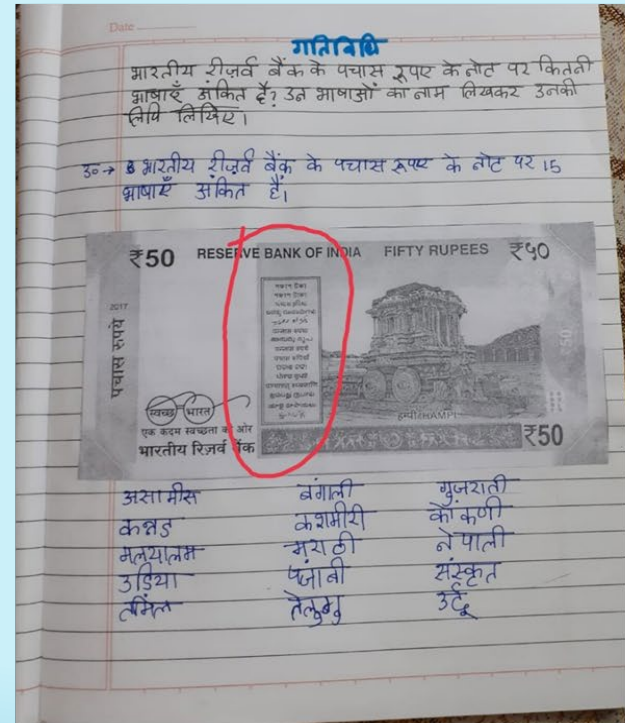 Date
गतिविधि
भारतीय रीज़र्व बैंक के पचास रूपए के नोट पर कितनी
भाषाएँ अंकित है? उन भाषाओं का नाम लिखकर उनकी
लिपि लिखिए।
उ० → भारतीय रीज़र्व बैंक के पचास रूपए के नोट पर 15
भाषाएँ अंकित हैं।
₹50 RESERVE BANK OF INDIA FIFTY RUPEES ₹५०
2017
पचास रुपये
स्वच्छ भारत
एक कदम स्वच्छता की ओर
भारतीय रिज़र्व बैंक
₹50
असामीस बंगाली गुजराती
कन्नड कशमीरी कोंकणी
मलयालम मराठी नेपाली
उडिया पंजाबी संस्कृत
तमिल तेलुगु उर्दू